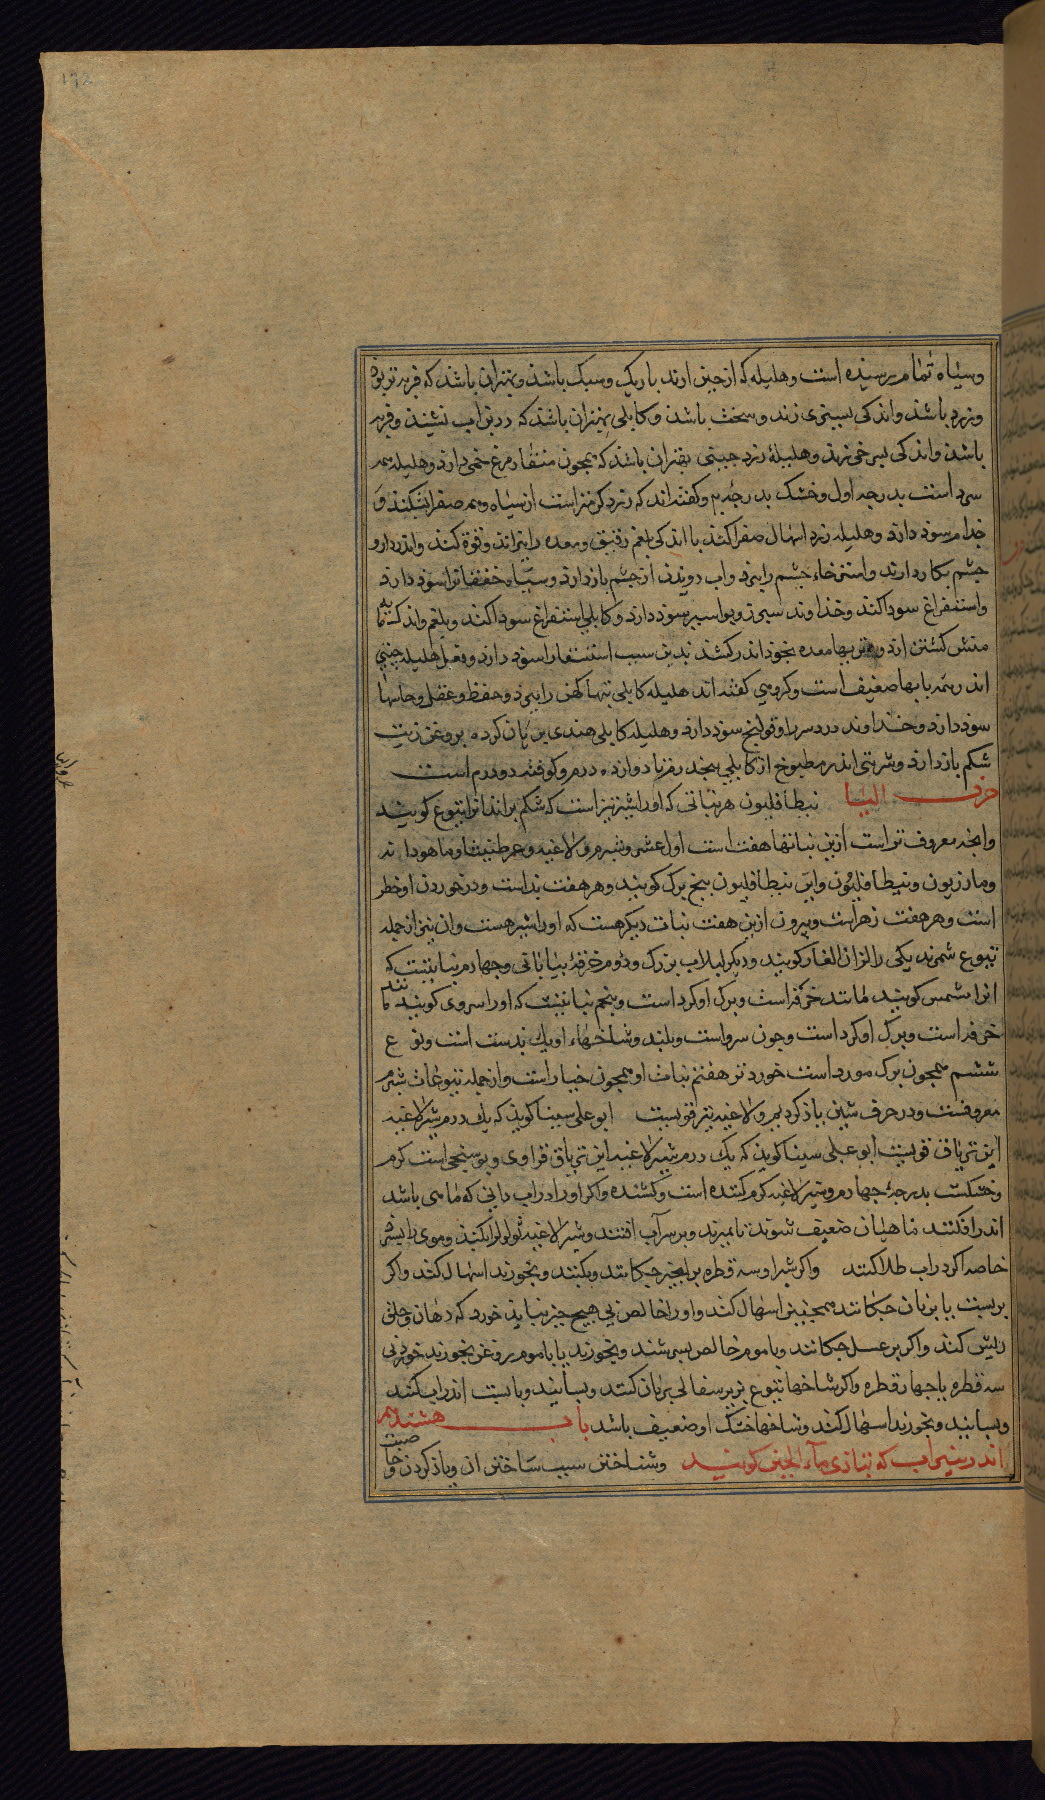 وسیاه تمام رسیده است و هلیله که از چین ارند باریک و سبک باشد و بهتران باشد که فربه تر بود
و زرد باشد و اندکی بسبزی زند و سخت باشد و کابلی بهتران باشد که در بن اب نشیند و فربه
باشد و اندکی بسرخی زند و هلیلهٔ زرد چینی بهتران باشد که همچون منقار مرغ خمی دارد و هلیله همه
سرد است بدرجه اول و خشک بدرجهٔ دوم و گفته اند که زرد گرمتر است از سیاه و همه صفرا بشکند و
جذام سود دارد و هلیله زرد اسهال صفرا کند با اندکی بلغم رقیق و معده را قوة کند و اندر دارو
چشم بکار دارند و استرخاء چشم را ببرد و اب دویدن از چشم باز دارد و سیاه خفقانرا سود دارد
و استفراغ سودا کند و خداوند سپرز و بواسیر سود دارد و کابلی استفراغ سودا کند و بلغم و اندک مایه
منش گشتن ارد و معده بخود اندر کشد بدین سبب استسقا را سود دارد و فعل هلیله چینی
اندر همه بابها ضعیف است و گروهی گفته اند هلیله کابلی تبهاء کهن را ببرد و حفظ و عقل و حاستها
سود دارد و خداوند درد سر را و قولنج سود دارد و هلیله کابلی هندی بریان کرده بروغن زیت
شکم باز دارد و شربتی اندر مطبوخ از کابلی پنج درم تا دوازده درم و کوفته دو درم است
حرف الیا نیطافلیون هر نباتی که اورا شیر تیز است که شکم براند انرا یتوع گویند
وانچه معروف تر است ازین نباتها هفت است اول عشر و شبرم و لاغیه و عرطنیثا و ماهودانه
و مازریون و نیطافلیون و این نیطافلیون پنج برگ گویند و هر هفت بد است و در خوردن او خطر
است و هر هفت زهر است و بیرون ازین هفت نبات دیگر هست که اورا شیر هست وان نیز از جمله
یتوع شمرند یکی را لزان الفار گویند و دیگر لبلاب بزرگ و دوم خرفهٔ بیابانی و چهارم نباتیست که
انرا مشمس گویند مانند خرفه است و برگ او گرد است و پنجم نباتیست که اورا سروی گویند مانند
خرفه است و برگ او گرد است و چون سرو است و بلند و شاخهاء او یک بدست است و نوع
ششم همچون برگ مورد است خورد تر هفتم نبات او همچون خیار است و از جمله یتوعات شبرم
معروفست و در حرف شین یاد کردیم و لاغیه نیز قویست ابو علی سینا گوید که یک درم شیر لاغیه
این تریاق قویست ابو علی سینا گوید که یک درم شیر لاغیه این تریاق فراوی و بوسنجی است گرم
و خشکست بدرجهٔ چهارم و شیر لاغیه گرم کننده است و کشنده و اگر اورا در ابدانی که ماهی باشد
اندر افکنند ماهیان ضعیف شوند تا بمیرند و بر سر آب افتند و شیر لاغیه ثولول را بکند و موی را بسترد
خاصه اگر در اب طلا کنند و اگر شیر او سه قطره بر انجیر چکانند و بکنند و بخورند اسهال کند و اگر
بر پست یا بر نان چکانند همچنین اسهال کند و اورا خالص بی هیچ چیز نباید خورد که دهان و حلق
ریش کند و اگر بر عسل چکانند و با موم خالص بسرشند و بخورند یا با موم روغن بخورند خوردنی
سه قطره یا چهار قطره و اگر شاخها یتوع بر بر سفالی بریان کنند و بسایند و با پست اندر اب کنند
و بسایند و بخورند اسهال کند و شاخها خشک او ضعیف باشد باب هشتم
اندر پنیراب که بتازی ماء الجبن گویند و شناختن سبب ساختن ان و یاد کردن خاصیت